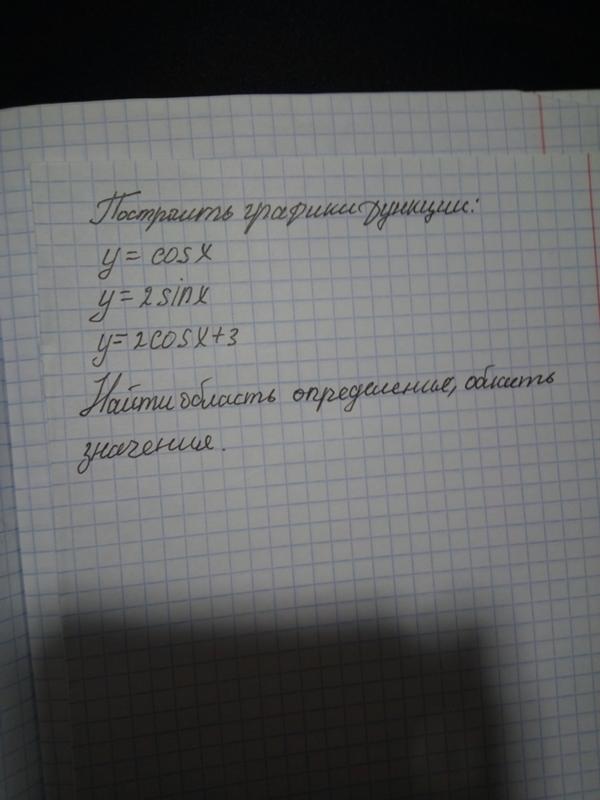 Построить графики функции:
y = cosx
y = 2sinx
y = 2cosx+3
Найти область определения, область
значения.